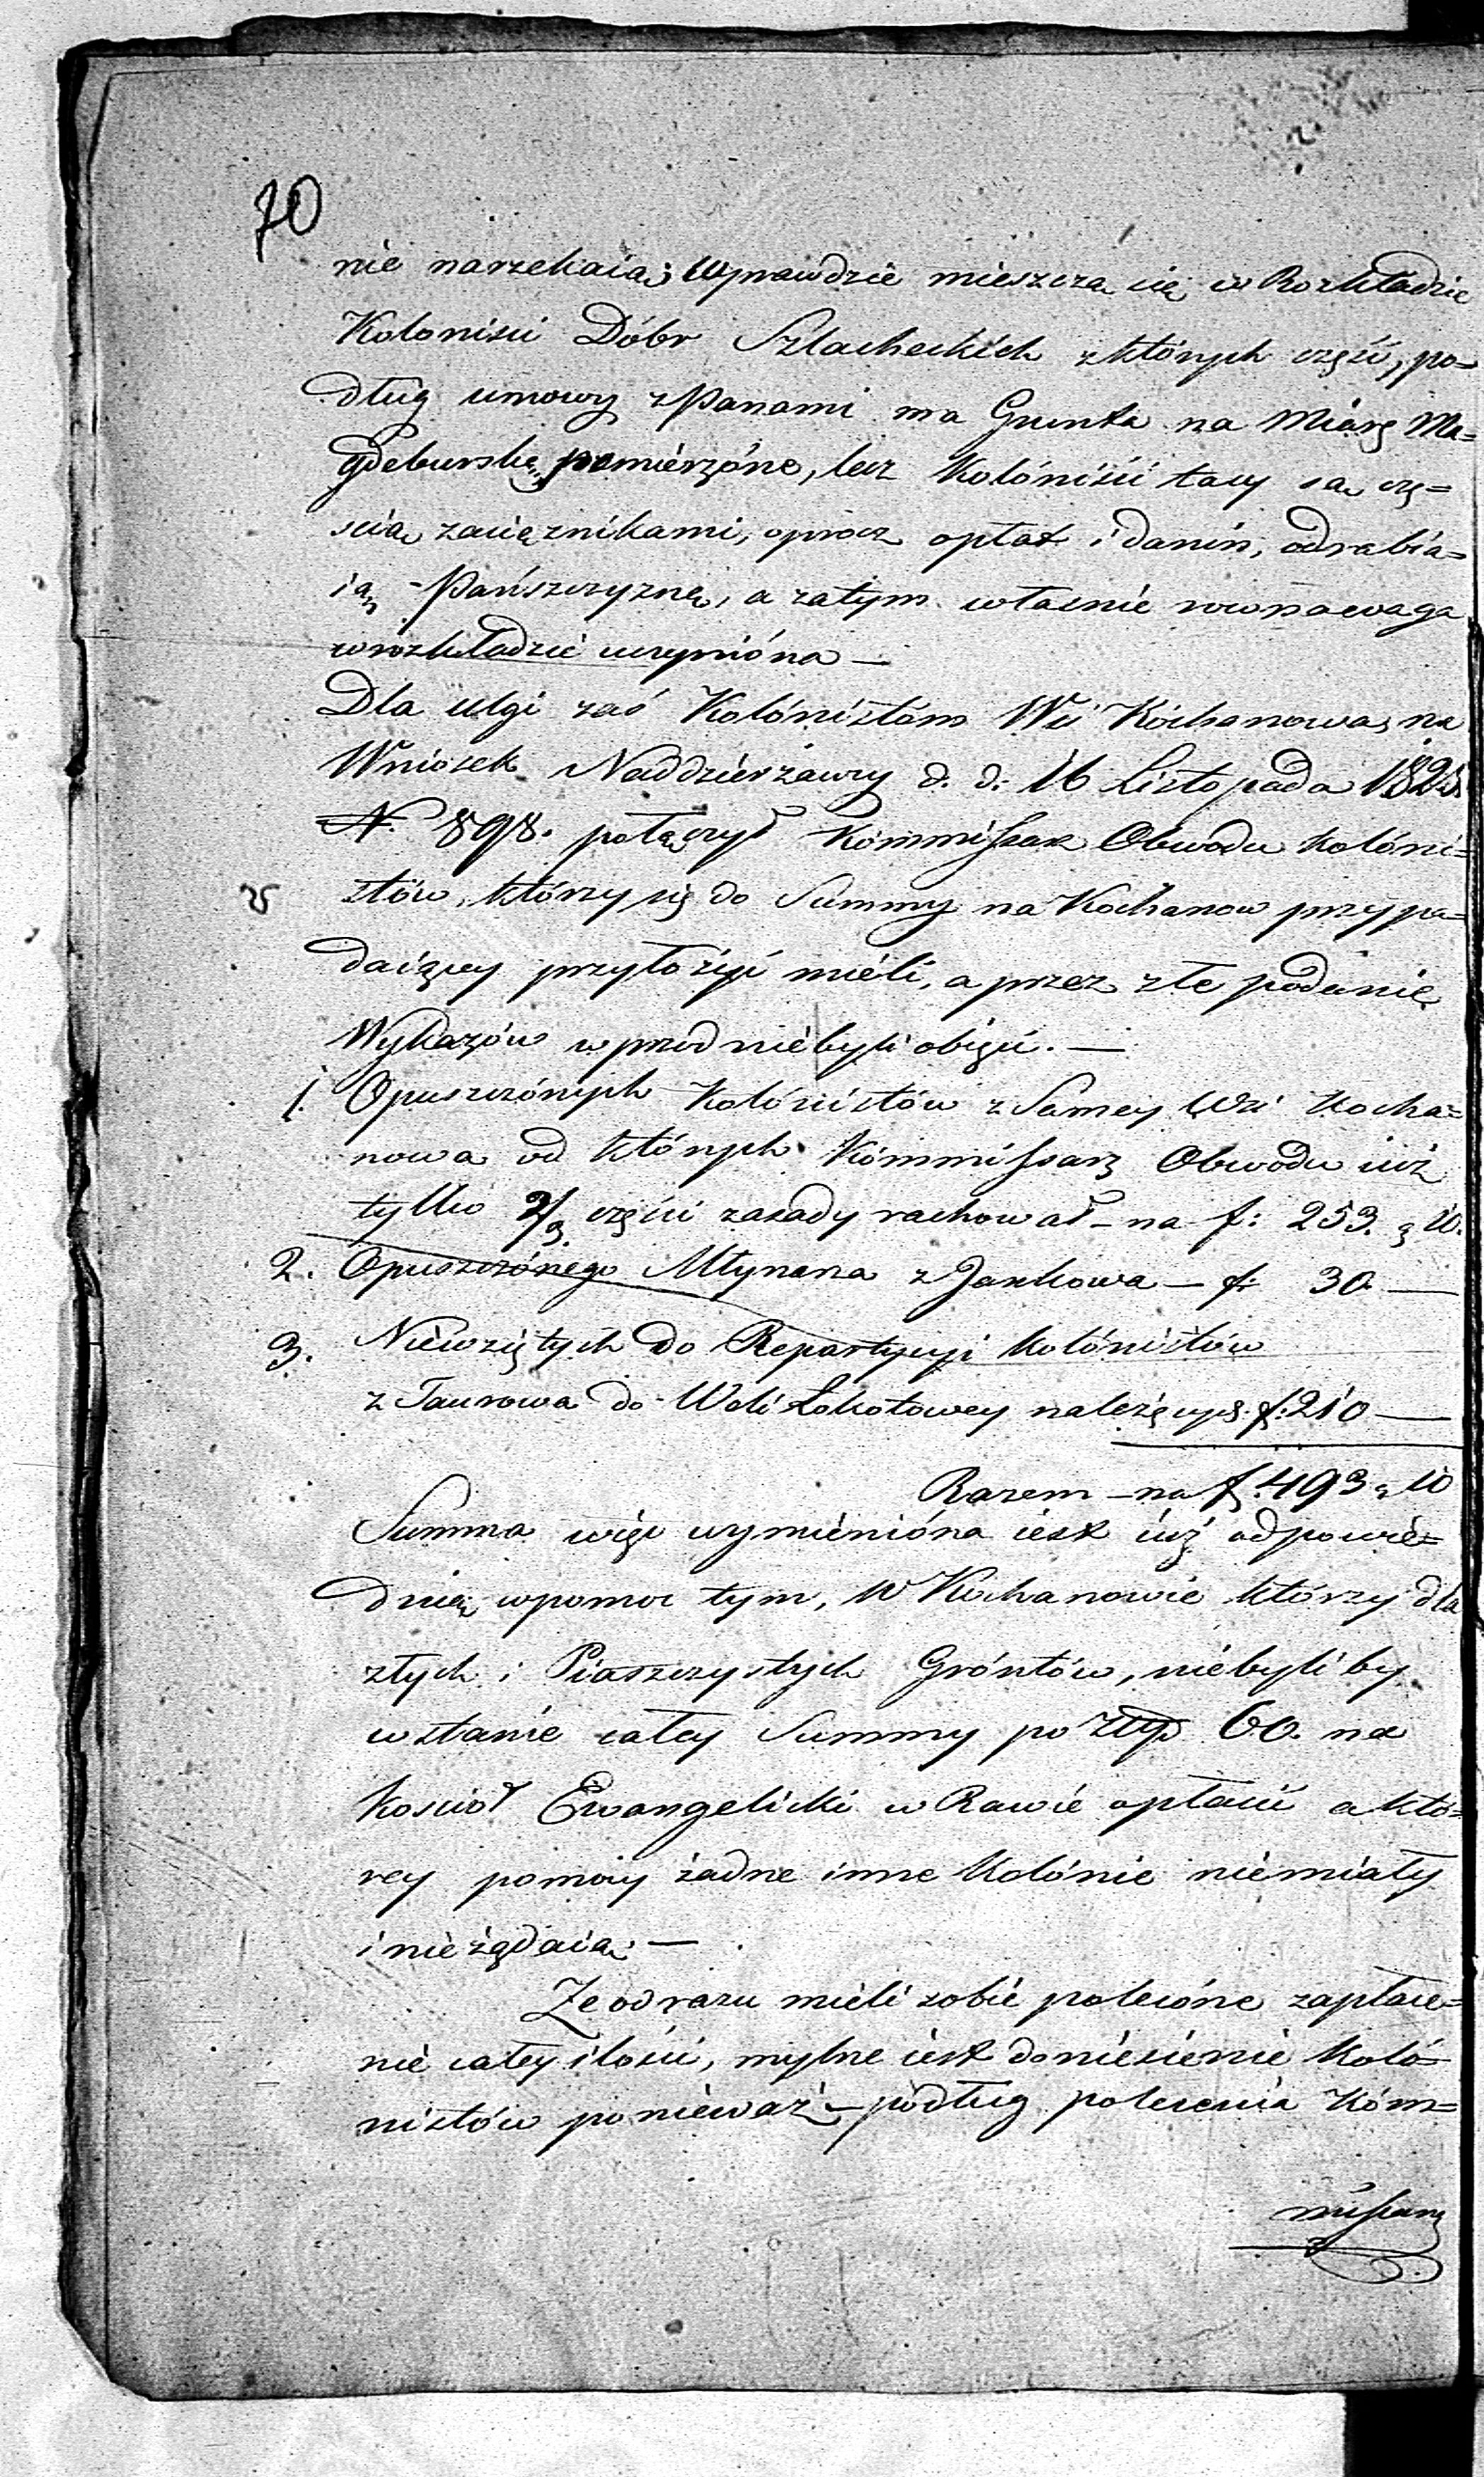 70
nie narzekaią; Wprawdzie mieszczą się w Rozkładzie
Kolonisci Dóbr Szlacheckich z których część, po=
dług umowy z Panami ma Grunta na Miarę Ma=
gdeburską pomierzóne, lecz Kolóniści tacy są czę=
scią zaciężnikami, oprocz opłat i danin, odrabia=
ią Pańszczyznę, a zatym własnie rownowaga
w rozkładzie uczynióna —
Dla ulgi zaś Kolónistóm Wsi Kochanowa, na
Wniosek Naddzierżawcy d. d: 16 Listopada
N. 898. połączył Kommissarz Obwodu Kolóni=
stów, którzy się do Summy na Kochanow przypa=
daiącey przyłożyć mieli, a przez złe podanie
Wykazów wprzod niebyli obięci. —
1. Opuszczónych Kolónistów z Samey Wsi Kocha=
nowa od których Kómmissarz Obwodu iuż
tylko 2/3 części zasady rachował – na f: 253. g 10.
2. Opuszczónego Młynarza z Jankowa — f: 30 —
3. Niewziętych do Repartycyi Kolónistów
z Taurowa do Woli Łokotowey należących f: 210 —
Razem – na f. 493 g 10
Summa więc wymienióna iest iuż odpowie=
dnią w pomoc tym, w Kochanowie którzy dla
złych i Piaszczystych Gróntów, niebyliby
wstanie całey Summy po złp 60. na
Kosciół Ewangelicki w Rawie opłacić a któ=
rey pomocy żadne inne Kolónie niemiały
i nieżądaią; —
Że odrazu mieli sobie polecóne zapłace=
nie całey ilości, mylne iest doniesienie Koló=
nistów ponieważ podług polecenia Kóm=
missarz